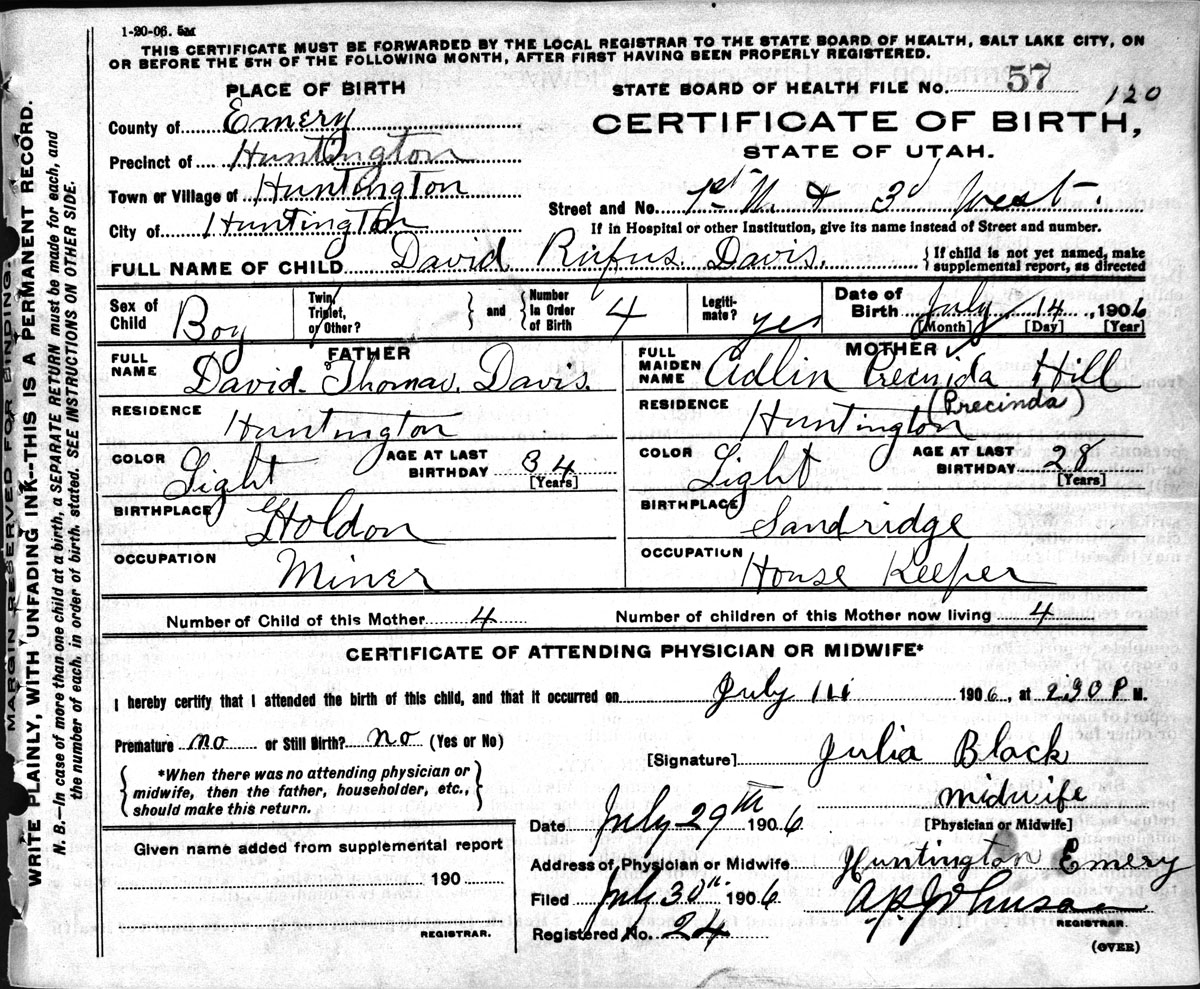 1-20-06. 5M
THIS CERTIFICATE MUST BE FORWARDED BY THE LOCAL REGISTRAR TO THE STATE BOARD OF HEALTH, SALT LAKE CITY, ON
OR BEFORE THE 5TH OF THE FOLLOWING MONTH, AFTER FIRST HAVING BEEN PROPERLY REGISTERED.
PLACE OF BIRTH
STATE BOARD OF HEALTH FILE No. 57 120
County of Emery
CERTIFICATE OF BIRTH,
Precinct of Huntington
STATE OF UTAH.
Town or Village of Huntington
Street and No. 1st N. & 3d West.
City of Huntington
If in Hospital or other Institution, give its name instead of Street and number.
FULL NAME OF CHILD David Rufus Davis. {If child is not yet named, make
supplemental report, as directed
Sex of Child Boy
Twin, Triplet, or Other? } and { Number in Order of Birth 4
Legitimate? yes
Date of Birth July 14, 1906
[Month] [Day] [Year]
FATHER
FULL NAME David Thomas Davis.
RESIDENCE Huntington
COLOR Light AGE AT LAST BIRTHDAY 34
[Years]
BIRTHPLACE Holdon
OCCUPATION Miner
MOTHER
FULL MAIDEN NAME Adlin Precnida Hill
(Precinda)
RESIDENCE Huntington
COLOR Light AGE AT LAST BIRTHDAY 28
[Years]
BIRTHPLACE Sandridge
OCCUPATION House Keeper
Number of Child of this Mother 4 Number of children of this Mother now living 4
CERTIFICATE OF ATTENDING PHYSICIAN OR MIDWIFE*
I hereby certify that I attended the birth of this child, and that it occurred on July 14 1906, at 2:30 P M.
Premature no or Still Birth? no (Yes or No)
[Signature] Julia Black
{ *When there was no attending physician or
midwife, then the father, householder, etc.,
should make this return. }
midwife
[Physician or Midwife]
Date July 29th 1906
Given name added from supplemental report
190
REGISTRAR.
Address of Physician or Midwife Huntington Emery
Filed July 30th 1906
Johnson
REGISTRAR.
Registered No. 24
(OVER)
MARGIN RESERVED FOR BINDING.
WRITE PLAINLY, WITH UNFADING INK--THIS IS A PERMANENT RECORD.
N. B.—In case of more than one child at a birth, a SEPARATE RETURN must be made for each, and
the number of each, in order of birth, stated. SEE INSTRUCTIONS ON OTHER SIDE.